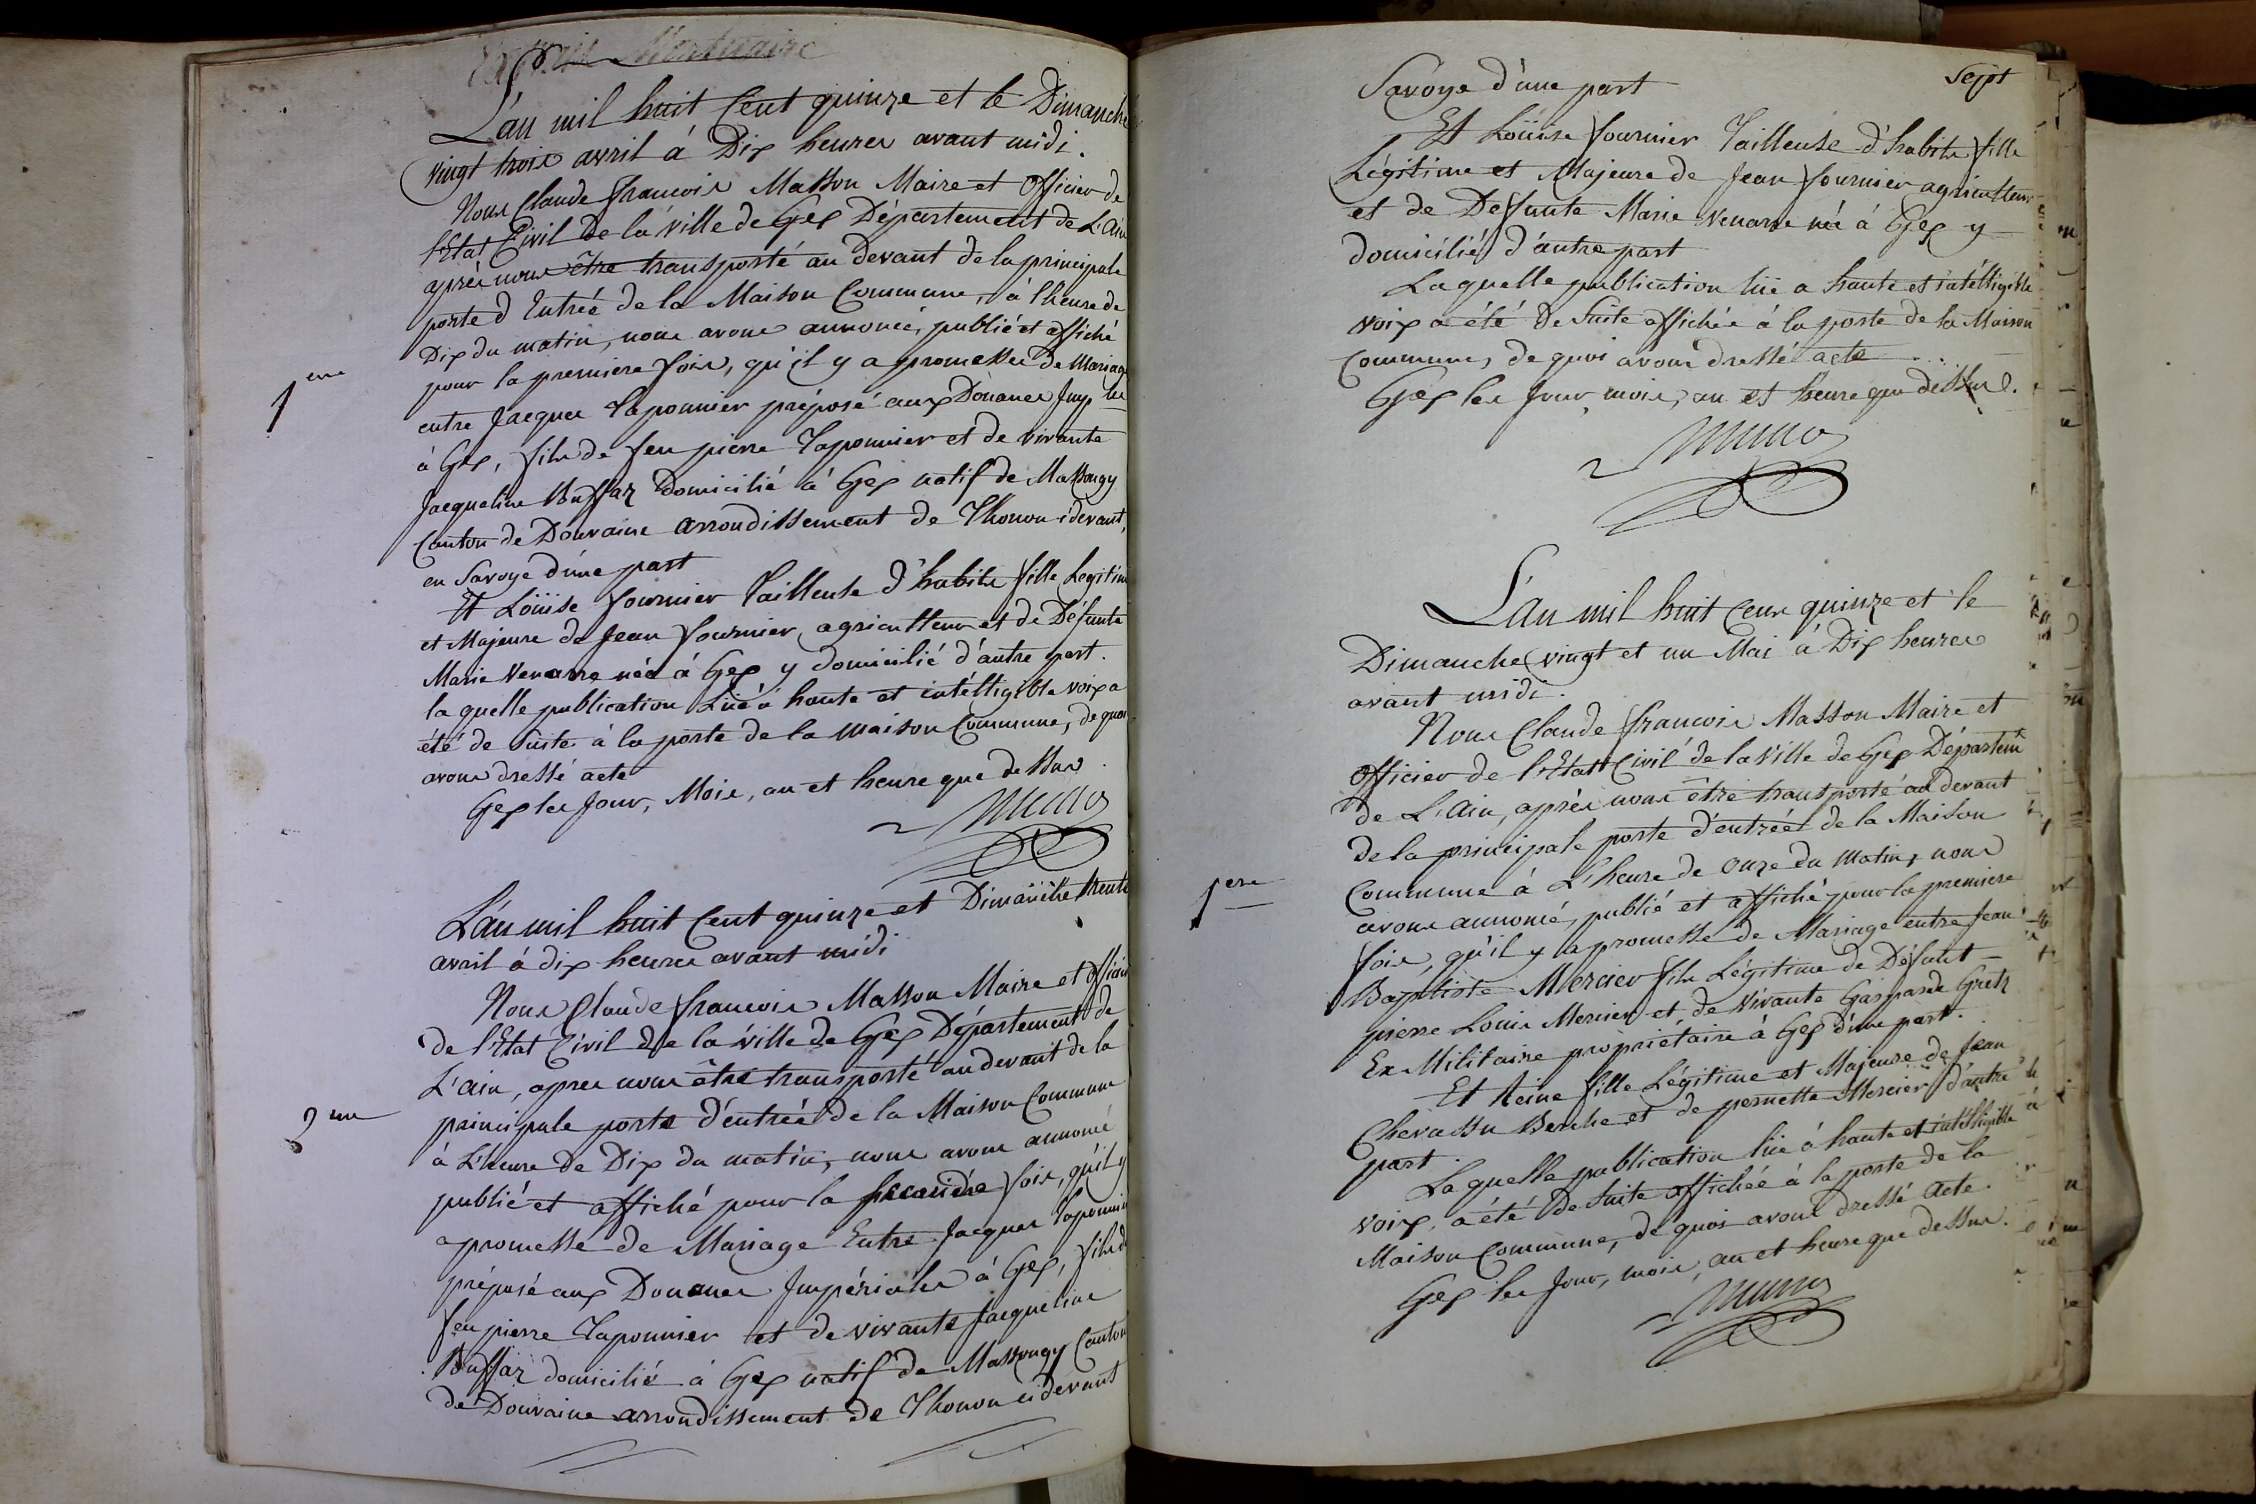 Mortuaire
L'an mil huit Cent quinze et le Dimanche
vingt trois avril à Dix heures avant midi.
Nous Claude francois Masson Maire et Officier de
l'Etat Civil de la ville de Gex Département de L'Ain
après nous être transporté au devant de la principale
porte d'Entrée de la Maison Commune, à l'heure de
Dix du matin, nous avons annoncé, publié et affiché
1ere
pour la premiere fois, qu'il y a promesse de Mariage
entre Jacques Taponnier préposé aux Douanes Imp les
à Gex, fils de feu pierre Taponnier et de vivante
Jacqueline Buffaz Domicilié à Gex natif de Massongy
Canton de Douvaine arrondissement de Thonon cidevant,
en Savoye d'une part
Et Loüise fournier Tailleuse d'habits fille Legitime
et Majeure de Jean fournier agriculteur et de Défunte
Marie Venarre née à Gex y domicilié d'autre part.
la quelle publication Lüe à haute et intélligible voix a
été de suite à la porte de la Maison Commune, de quoi
avons dressé acte
Gex les Jour, Mois, an et heure que dessus.
L'an mil huit Cent quinze et Dimanche trente
avril à dix heures avant midi
Nous Claude francois Masson Maire et Officier
de l'Etat Civil de la ville de Gex Département de
L'ain, apres nous être transporté au devant de la
2me
principale porte d'entrée de la Maison Commune
à L'heure de Dix du matin, nous avons annoncé
publié et affiché pour la seconde fois, qu'il y
a promesse de Mariage Entre Jacques Taponnier
préposé aux Douanes Impériales à Gex, fils de
feu pierre Taponnier et de vivante Jacqueline
Buffaz domicilié à Gex natif de Massongy Canton
de Douvaine arrondissement de Thonon cidevant
Sept
Savoye d'une part
Et Loüise fournier Tailleuse d'habits fille
Légitime et Majeure de Jean fournier agriculteur
et de Defunte Marie Venarre née à Gex y
domicilié d'autre part
Laquelle publication lüe a haute et intélligible
voix a été de Suite affichée à la porte de la Maison
Commune, de quoi avons dressé acte
Gex les Jour, mois, an et heure que dessus.
L'an mil huit Cent quinze et le
Dimanche vingt et un Mai à Dix heures
avant midi.
Nous Claude francois Masson Maire et
Officier de l'Etat Civil de la Ville de Gex Départemt
de L'Ain, après nous être transporté au devant
de la principale porte d'entrée de la Maison
1ere
Commune à L'heure de onze du Matin, nous
avons annoncé, publié et affiché pour la premiere
fois, qu'il y a promesse de Mariage entre Jean
Baptiste Mercier fils Légitime de Défunt
pierre Louis Mercier et de vivante Gasparde Gretz
Ex Militaire propriétaire à Gex d'une part.
Et Reine fille Légitime et Majeure de Jean
Chevassu Berche et de pernette Mercier d'autre
part.
Laquelle publication lüe à haute et intélligible
voix, a été de Suite affichée à la porte de la
Maison Commune, de quoi avons dressé Acte.
Gex les Jour, mois, an et heure que dessus.